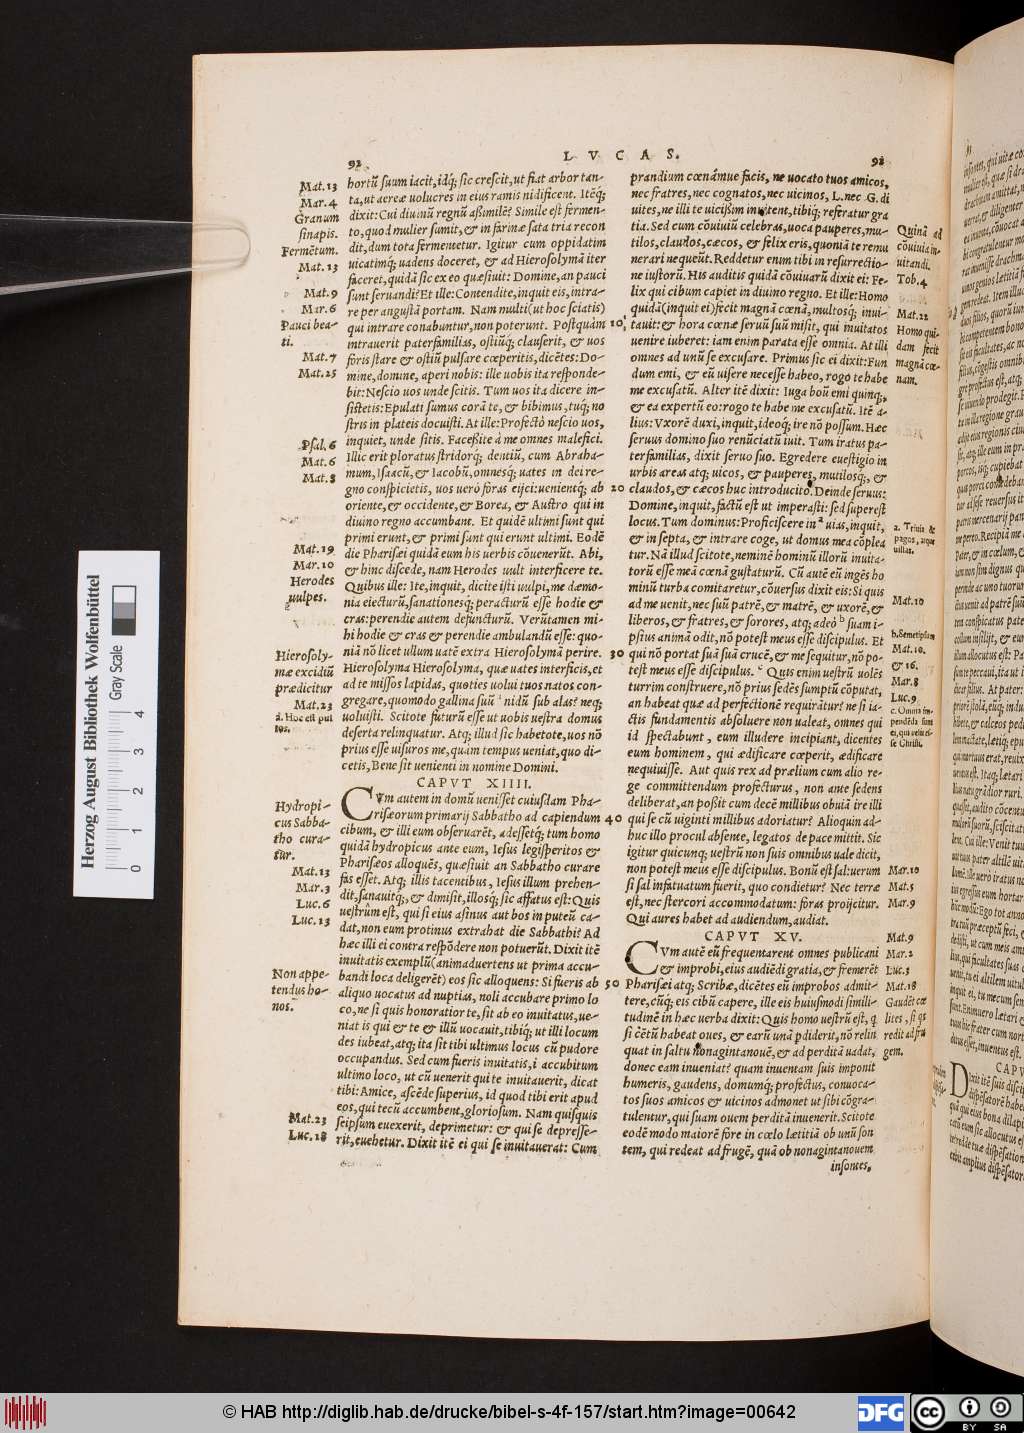 LVCAS.
92
hortū suum iacit, idq́; sic crescit, ut fiat arbor tan-
ta, ut aereæ uolucres in eius ramis nidificent. Itēq́;
dixit: Cui diuinū regnū aßimilē? Simile est fermen-
to, quod mulier sumit, & in farinæ sata tria recon
dit, dum tota fermentetur. Igitur cum oppidatim
uicatimq́; uadens doceret, & ad Hierosolymā iter
faceret, quidā sic ex eo quæsiuit: Domine, an pauci
sunt seruandi? Et ille: Contendite, inquit eis, intra-
re per angustā portam. Nam multi (ut hoc sciatis)
qui intrare conabuntur, non poterunt. Postquàm
intrauerit paterfamilias, ostiūq́; clauserit, & uos
foris stare & ostiū pulsare cœperitis, dicētes: Do-
mine, domine, aperi nobis: ille uobis ita responde-
bit: Nescio uos unde scitis. Tum uos ita dicere in-
sistetis: Epulati sumus corā te, & bibimus, tuq́; no
stris in plateis docuisti. At ille: Profectò nescio uos,
inquiet, unde sitis. Facessite à me omnes malefici.
Illic erit ploratus stridorq́; dentiū, cum Abraha-
mum, Isaacū, & Iacobū, omnesq́; uates in dei re-
gno conspicietis, uos uerò foras eijci: uenientq́; ab
oriente, & occidente, & Borea, & Austro qui in
diuino regno accumbant. Et quidē ultimi sunt qui
primi erunt, & primi sunt qui erunt ultimi. Eodē
die Pharisæi quidā eum his uerbis cōuenerūt. Abi,
& hinc discede, nam Herodes uult interficere te.
Quibus ille: Ite, inquit, dicite isti uulpi, me dæmo-
nia eiecturū, sanationesq́; peracturū esse hodie &
cras: perendie autem defuncturū. Verūtamen mi-
hi hodie & cras & perendie ambulandū esse: quo-
niā nō licet ullum uatē extra Hierosolymā perire.
Hierosolyma Hierosolyma, quæ uates interficis, et
ad te missos lapidas, quoties uolui tuos natos con-
gregare, quomodo gallina suū nidū sub alas? neq́;
uoluisti. Scitote futurū esse ut uobis uestra domus
deserta relinquatur. Atq́; illud sic habetote, uos nō
prius esse uisuros me, quàm tempus ueniat, quo di-
cetis, Bene sit uenienti in nomine Domini.
CAPVT XIIII.
CVm autem in domū uenisset cuiusdam Pha-
risæorum primarij Sabbatho ad capiendum
cibum, & illi eum obseruarēt, adessetq́; tum homo
quidā hydropicus ante eum, Iesus legisperitos &
Phariseos alloquēs, quæsiuit an Sabbatho curare
fas esset. Atq́; illis tacentibus, Iesus illum prehen-
dit, sanauitq́;, & dimisit, illosq́; sic affatus est: Quis
uestrûm est, qui si eius asinus aut bos in puteū ca-
dat, non eum protinus extrahat die Sabbathi? Ad
hæc illi ei contra respōdere non potuerūt. Dixit itē
inuitatis exemplū (animaduertens ut prima accu-
bandi loca deligerēt) eos sic alloquens: Si fueris ab
aliquo uocatus ad nuptias, noli accubare primo lo
co, ne si quis honoratior te, sit ab eo inuitatus, ue-
niat is qui & te & illū uocauit, tibiq́; ut illi locum
des iubeat, atq́; ita sit tibi ultimus locus cū pudore
occupandus. Sed cum fueris inuitatis, i accubitum
ultimo loco, ut cū uenerit qui te inuitauerit, dicat
tibi: Amice, ascēde superius, id quod tibi erit apud
eos, qui tecū accumbent, gloriosum. Nam quisquis
seipsum euexerit, deprimetur: & qui se depresse-
rit, euehetur. Dixit itē ei qui se inuitauerat: Cum
Mat.13
Mar.4
Granum
sinapis.
Fermētum.
Mat.13
Mat.9
Mar.6
Pauci bea-
ti.
Mat.7
Mat.25
Psal.6
Mat.6
Mat.8
Mat.19
Mar.10
Herodes
uulpes.
Hierosoly-
mæ excidiū
prædicitur
Mat.23
a. Hoc est pul
los.
Hydropi-
cus Sabba-
tho cura-
tur.
Mat.13
Mar.3
Luc.6
Luc.13
Non appe-
tendus ho-
nos.
Mat.23
Luc.18
10
20
30
40
50
98
prandium cœnámue facis, ne uocato tuos amicos,
nec fratres, nec cognatos, nec uicinos, L. nec G. di
uites, ne illi te uicißim inuitent, tibiq́; referatur gra
tia. Sed cum cōuiuiū celebras, uoca pauperes, mu-
tilos, claudos, cæcos, & felix eris, quoniā te remu
nerari nequeūt. Reddetur enim tibi in resurrectio-
ne iustorū. His auditis quidā cōuiuarū dixit ei: Fe-
lix qui cibum capiet in diuino regno. Et ille: Homo
quidā (inquit ei) fecit magnā cœnā, multosq́; inui-
tauit: & hora cœnæ seruū suū misit, qui inuitatos
uenire iuberet: iam enim parata esse omnia. At illi
omnes ad unū se excusare. Primus sic ei dixit: Fun
dum emi, & eū uisere necesse habeo, rogo te habe
me excusatū. Alter itē dixit: Iuga boū emi quinq́;,
& ea expertū eo: rogo te habe me excusatū. Itē a-
lius: Vxorē duxi, inquit, ideoq́; ire nō possum. Hæc
seruus domino suo renūciatū iuit. Tum iratus pa-
terfamilias, dixit seruo suo. Egredere euestigio in
urbis areas atq́; uicos, & pauperes, mutilosq́;, &
claudos, & cæcos huc introducito. Deinde seruus:
Domine, inquit, factū est ut imperasti: sed superest
locus. Tum dominus: Proficiscere in uias, inquit,
& in septa, & intrare coge, ut domus mea cōplea
tur. Nā illud scitote, neminē hominū illorū inuita-
torū esse meā cœnā gustaturū. Cū autē eū ingēs ho
minū turba comitaretur, cōuersus dixit eis: Si quis
ad me uenit, nec suū patrē, & matrē, & uxorē, &
liberos, & fratres, & sorores, atq́; adeò suam i-
psius animā odit, nō potest meus esse discipulus. Et
qui nō portat suā suā crucē, & me sequitur, nō po-
test meus esse discipulus. Quis enim uestrū uolēs
turrim construere, nō prius sedēs sumptū cōputat,
an habeat quæ ad perfectionē requirātur? ne si ia-
ctis fundamentis absoluere non ualeat, omnes qui
id spectabunt, eum illudere incipiant, dicentes
eum hominem, qui ædificare cœperit, ædificare
nequiuisse. Aut quis rex ad prælium cum alio re-
ge committendum profecturus, non ante sedens
deliberat, an poßit cum decē millibus obuiā ire illi
qui se cū uiginti millibus adoriatur? Alioquin ad-
huc illo procul absente, legatos de pace mittit. Sic
igitur quicunq́; uestrū non suis omnibus uale dicit,
non potest meus esse discipulus. Bonū est sal: uerum
si sal infatuatum fuerit, quo condietur? Nec terræ
est, nec stercori accommodatum: foras proijcitur.
Qui aures habet ad audiendum, audiat.
CAPVT XV.
CVm autē eū frequentarent omnes publicani
& improbi, eius audiēdi gratia, & fremerēt
Pharisæi atq́; Scribæ, dicētes eū improbos admit-
tere, cūq́; eis cibū capere, ille eis huiusmodi simili-
tudinē in hæc uerba dixit: Quis homo uestrū est, q
si cētū habeat oues, & earū unā pdiderit, nō relin
quat in saltu nonagintanouē, & ad perditā uadat,
donec eam inueniat? quam inuentam suis imponit
humeris, gaudens, domumq́; profectus, conuoca-
tos suos amicos & uicinos admonet ut sibi cōgra-
tulentur, qui suam ouem perditā inuenerit. Scitote
eodē modo maiorē fore in cœlo lætitiā ob unū son
tem, qui redeat ad frugē, quā ob nonagintanouem
insontes,
Quinā ad
cōuiuia in-
uitandi.
Tob.4
Mat.22
Homo qui-
dam fecit
magnā cœ-
nam.
a. Triuia &
pagos, atque
uillas.
Mat.10
b. Semetipsum
Mat.10.
& 16.
Mar.8
Luc.9
c. Omnia im-
pendēda sunt
ei, qui uelit es-
se Christi.
Mar.10
Mat.5
Mar.9
Mat.9
Mar.2
Luc.5
Mat.18
Gaudēt cœ
lites, si qs
redit ad fru
gem.
Herzog August Bibliothek Wolfenbüttel
Gray Scale
0 1 2 3 4
© HAB http://diglib.hab.de/drucke/bibel-s-4f-157/start.htm?image=00642
DFG
cc
BY SA